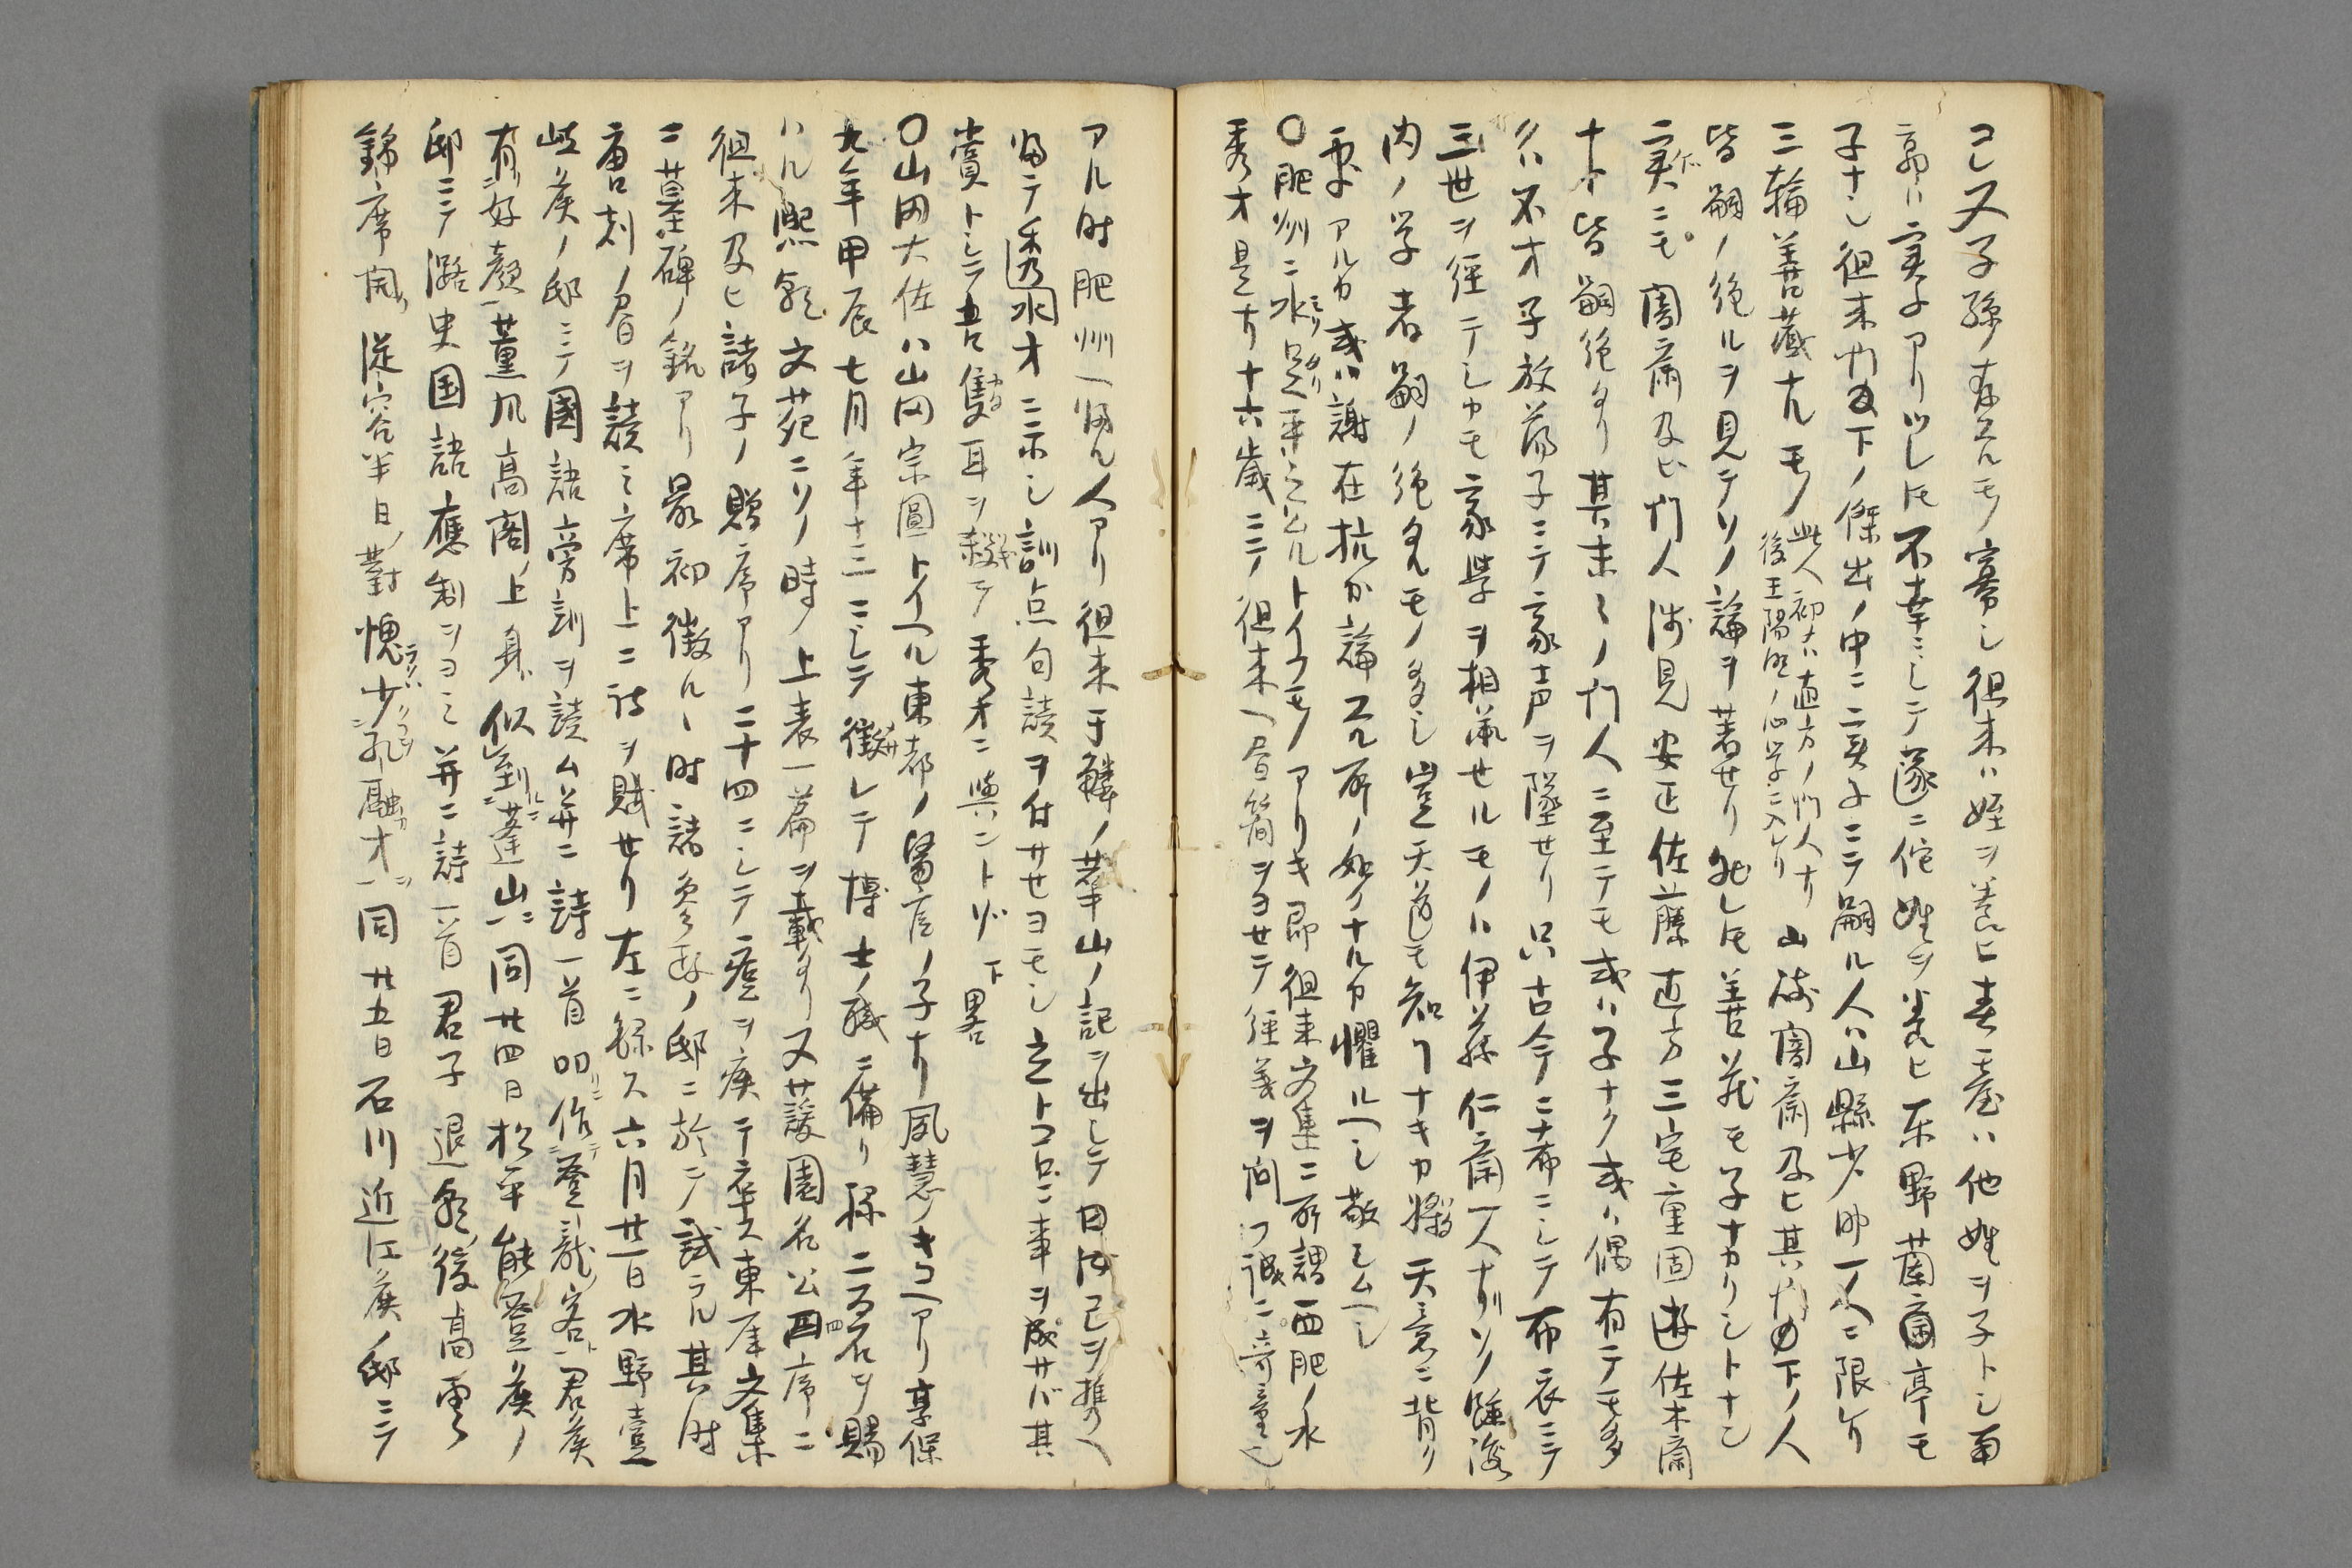 コレ又子孫存スルモノ寡シ徂来ハ姪ヲ養ヒ春臺ハ他姓ヲ子トシ南
郭ハ実子アリツレ𪜈不幸ニシテ遂ニ佗姓ヲ養ヒ東野蘭亭モ
子ナシ徂来門下ノ傑出ノ中ニ実子ニテ嗣ル人ハ山縣少助一人ニ限レリ
三輪善蔵ナル モノ此人初ハ直方ノ門人ナリ後王陽明ノ心学ニ入レリ山崎闇斎及ヒ其門下ノ人
皆嗣ノ絶ルヲ見テソノ論ヲ著セリ然レ𪜈善蔵モ子ナカリシトナン
実ニモ闇斎及ヒ門人浅見安正佐藤直方三宅重固遊佐木斎
ナト皆嗣絶タリ其末々ノ門人ニ至テモ或ハ子ナク或ハ偶有テモ多
クハ不才子放蕩子ニテ家声ヲ墜セリ只古今ニ希ニシテ布衣ニテ
三世ヲ経テシカモ家学ヲ相承セルモノハ伊藤仁斎一人ナリソノ餘海
内ノ学者嗣ノ絶タルモノ多シ豈天道モ知ナキカ将天意ニ背ク
アルカ或ハ謝在杭カ論スル所ノ如クナルカ懼ルヘシ敬シムヘシ
〇肥州ニ水足平之允トイフモノアリキ即徂来文集ニ所謂西肥ノ水
秀才是ナリ十六歳ニテ徂来ヘ書簡ヲヨセテ経義ヲ問フ誠ニ奇童也
アル时肥州ヘ帰ル人アリ徂来于鱗ノ華山ノ記ヲ出シテ曰汝己ヲ携ヘ
帰テ秀才ニ示シ訓点句読ヲ付サセヨモシ立トコロニ事ヲ成サバ其
賞トシテ吾隻耳ヲ截テ秀才ニ與ントゾ下畧
〇山田大佐ハ山田宗圓トイヘル東都ノ醫官ノ子ナリ夙慧ノキコヘアリ享保
九年甲辰七月年十三ニシテ徴サレテ博士ノ職ニ備リ禄二百石ヲ賜
ハル熙朝文苑ニソノ時ノ上表一篇ヲ載タリ又蘐園名公四序ニ
徂来及ヒ諸子ノ贈序アリ二十四ニシテ瘧ヲ疾テ卒ス東厓文集
ニ墓碑ノ銘アリ最初徴ルヽ时諸参政ノ邸ニ於テ試ラル其时
唐刻ノ書ヲ読ミ席上ニ詩ヲ賦セリ左ニ録ス六月廿一日水野壹
岐矦ノ邸ニテ國語旁訓ヲ読ム并ニ詩一首叨作登龍客君矦
有好顔薫風高閣上身似到蓬山同廿四日松平能登矦ノ
邸ニテ潞史国語應制ヲヨミ并ニ詩一首君子退朝後高雲
錦席開従容半日對愧少孔融才同廿五日石川近江矦ノ邸ニテ